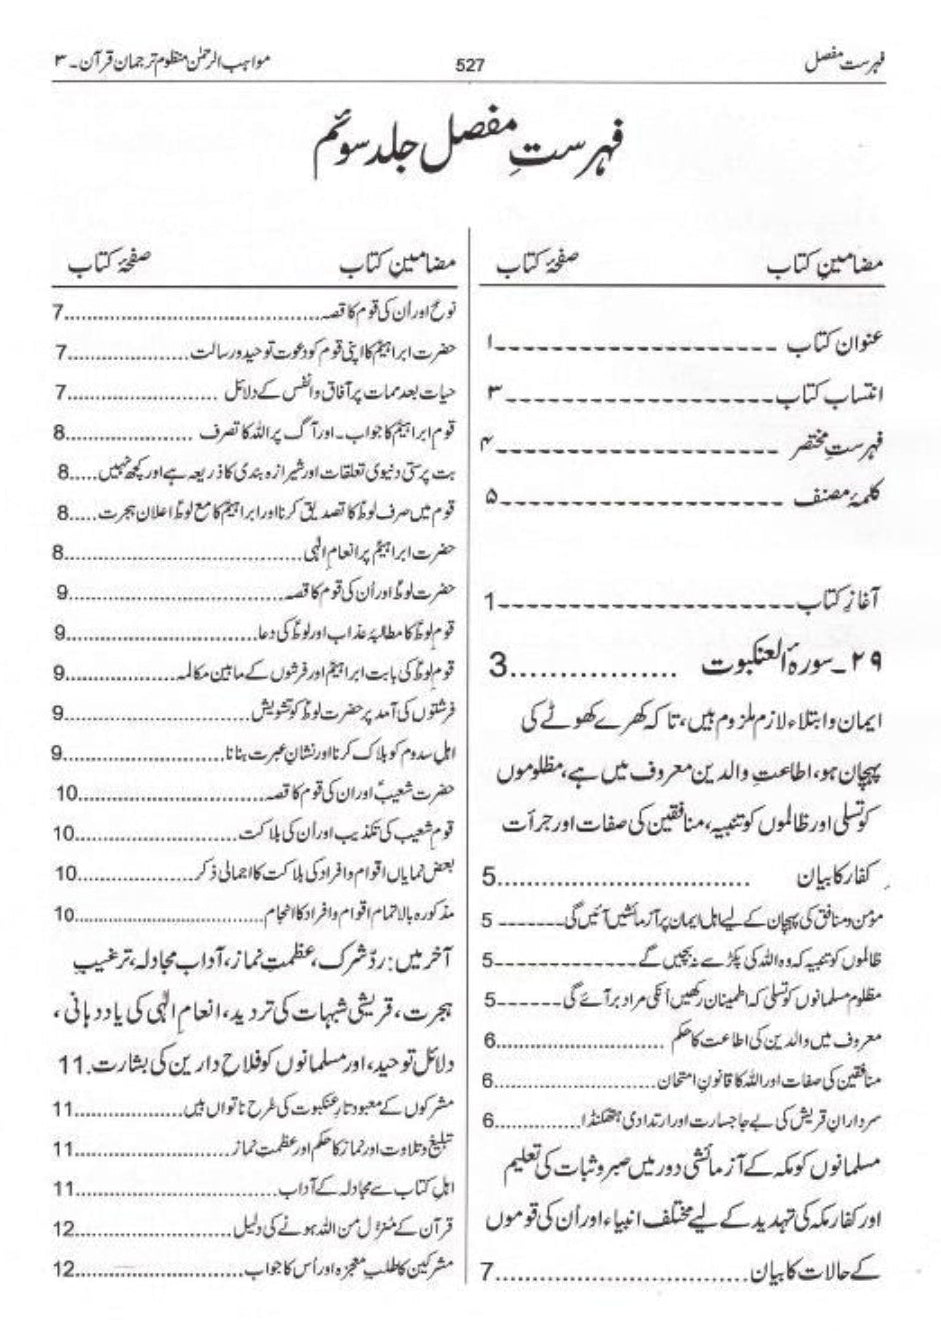 فہرست مفصل 527 مواہب الرحمٰن منظوم ترجمان قرآن۔ ۳
فہرستِ مفصل جلد سوئم
مضامینِ کتاب صفحۂ کتاب
عنوان کتاب ------------------------ ۱
انتساب کتاب ------------------------ ۳
فہرستِ مختصر ------------------------ ۴
کلمۂ مصنف ------------------------ ۵
آغازِ کتاب ------------------------ 1
۲۹۔ سورۂ العنکبوت ................. 3
ایمان وابتلاء لازم ملزوم ہیں، تا کہ کھرے کھوٹے کی
پہچان ہو، اطاعتِ والدین معروف میں ہے، مظلوموں
کو تسلی اور ظالموں کو تنبیہ، منافقین کی صفات اور جرأت
کفار کا بیان .......................... 5
مؤمن ومنافق کی پہچان کے لیے اہل ایمان پر آزمائشیں آئیں گی ------- 5
ظالموں کو تنبیہ کہ وہ اللہ کی پکڑ سے نہ بچیں گے -------------- 5
مظلوم مسلمانوں کو تسلی کہ اطمینان رکھیں اُنکی مراد بر آئے گی ------ 5
معروف میں والدین کی اطاعت کا حکم ............................ 6
منافقین کی صفات اور اللہ کا قانونِ امتحان ............................ 6
سردارانِ قریش کی بے جا جسارت اور ارتدادی ہتھکنڈا ............... 6
مسلمانوں کو مکہ کے آزمائشی دور میں صبر وثبات کی تعلیم
اور کفار مکہ کی تہدید کے لیے مختلف انبیاء اور اُن کی قوموں
کے حالات کا بیان .......................... 7
مضامینِ کتاب صفحۂ کتاب
نوحؑ اور اُن کی قوم کا قصہ ............................................ 7
حضرت ابراہیمؑ کا اپنی قوم کو دعوت توحید ورسالت ..................... 7
حیات بعد ممات پر آفاق وانفس کے دلائل .......................... 7
قوم ابراہیمؑ کا جواب۔ اور آگ پر اللہ کا تصرف ...................... 8
بت پرستی دنیوی تعلقات اور شیرازہ بندی کا ذریعہ ہے اور کچھ نہیں ..... 8
قوم میں صرف لوطؑ کا تصدیق کرنا اور ابراہیمؑ کا مع لوطؑ اعلان ہجرت ..... 8
حضرت ابراہیمؑ پر انعام الٰہی ........................................ 8
حضرت لوطؑ اور اُن کی قوم کا قصہ ..................................... 9
قوم لوطؑ کا مطالبۂ عذاب اور لوطؑ کی دعا ................................. 9
قوم لوطؑ کی بابت ابراہیمؑ اور فرشتوں کے مابین مکالمہ ..................... 9
فرشتوں کی آمد پر حضرت لوطؑ کو تشویش .................................. 9
اہل سدوم کو ہلاک کرنا اور نشانِ عبرت بنانا ............................. 9
حضرت شعیبؑ اور ان کی قوم کا قصہ ................................ 10
قوم شعیب کی تکذیب اور اُن کی ہلاکت ........................... 10
بعض نمایاں اقوام وافراد کی ہلاکت کا اجمالی ذکر .................... 10
مذکورہ بالا تمام اقوام وافراد کا انجام ................................ 10
آخر میں: ردِّ شرک، عظمتِ نماز، آداب مجادلہ، ترغیبِ
ہجرت، قریشی شبہات کی تردید، انعامِ الٰہی کی یاد دہانی،
دلائل توحید، اور مسلمانوں کو فلاحِ دارین کی بشارت. 11
مشرکوں کے معبود تارِ عنکبوت کی طرح ناتواں ہیں ................... 11
تبلیغ وتلاوت اور نماز کا حکم اور عظمتِ نماز .......................... 11
اہل کتاب سے مجادلہ کے آداب .................................. 11
قرآن کے مُنَزَّل من اللہ ہونے کی دلیل .......................... 12
مشرکین کا طلبِ معجزہ اور اُس کا جواب ............................ 12